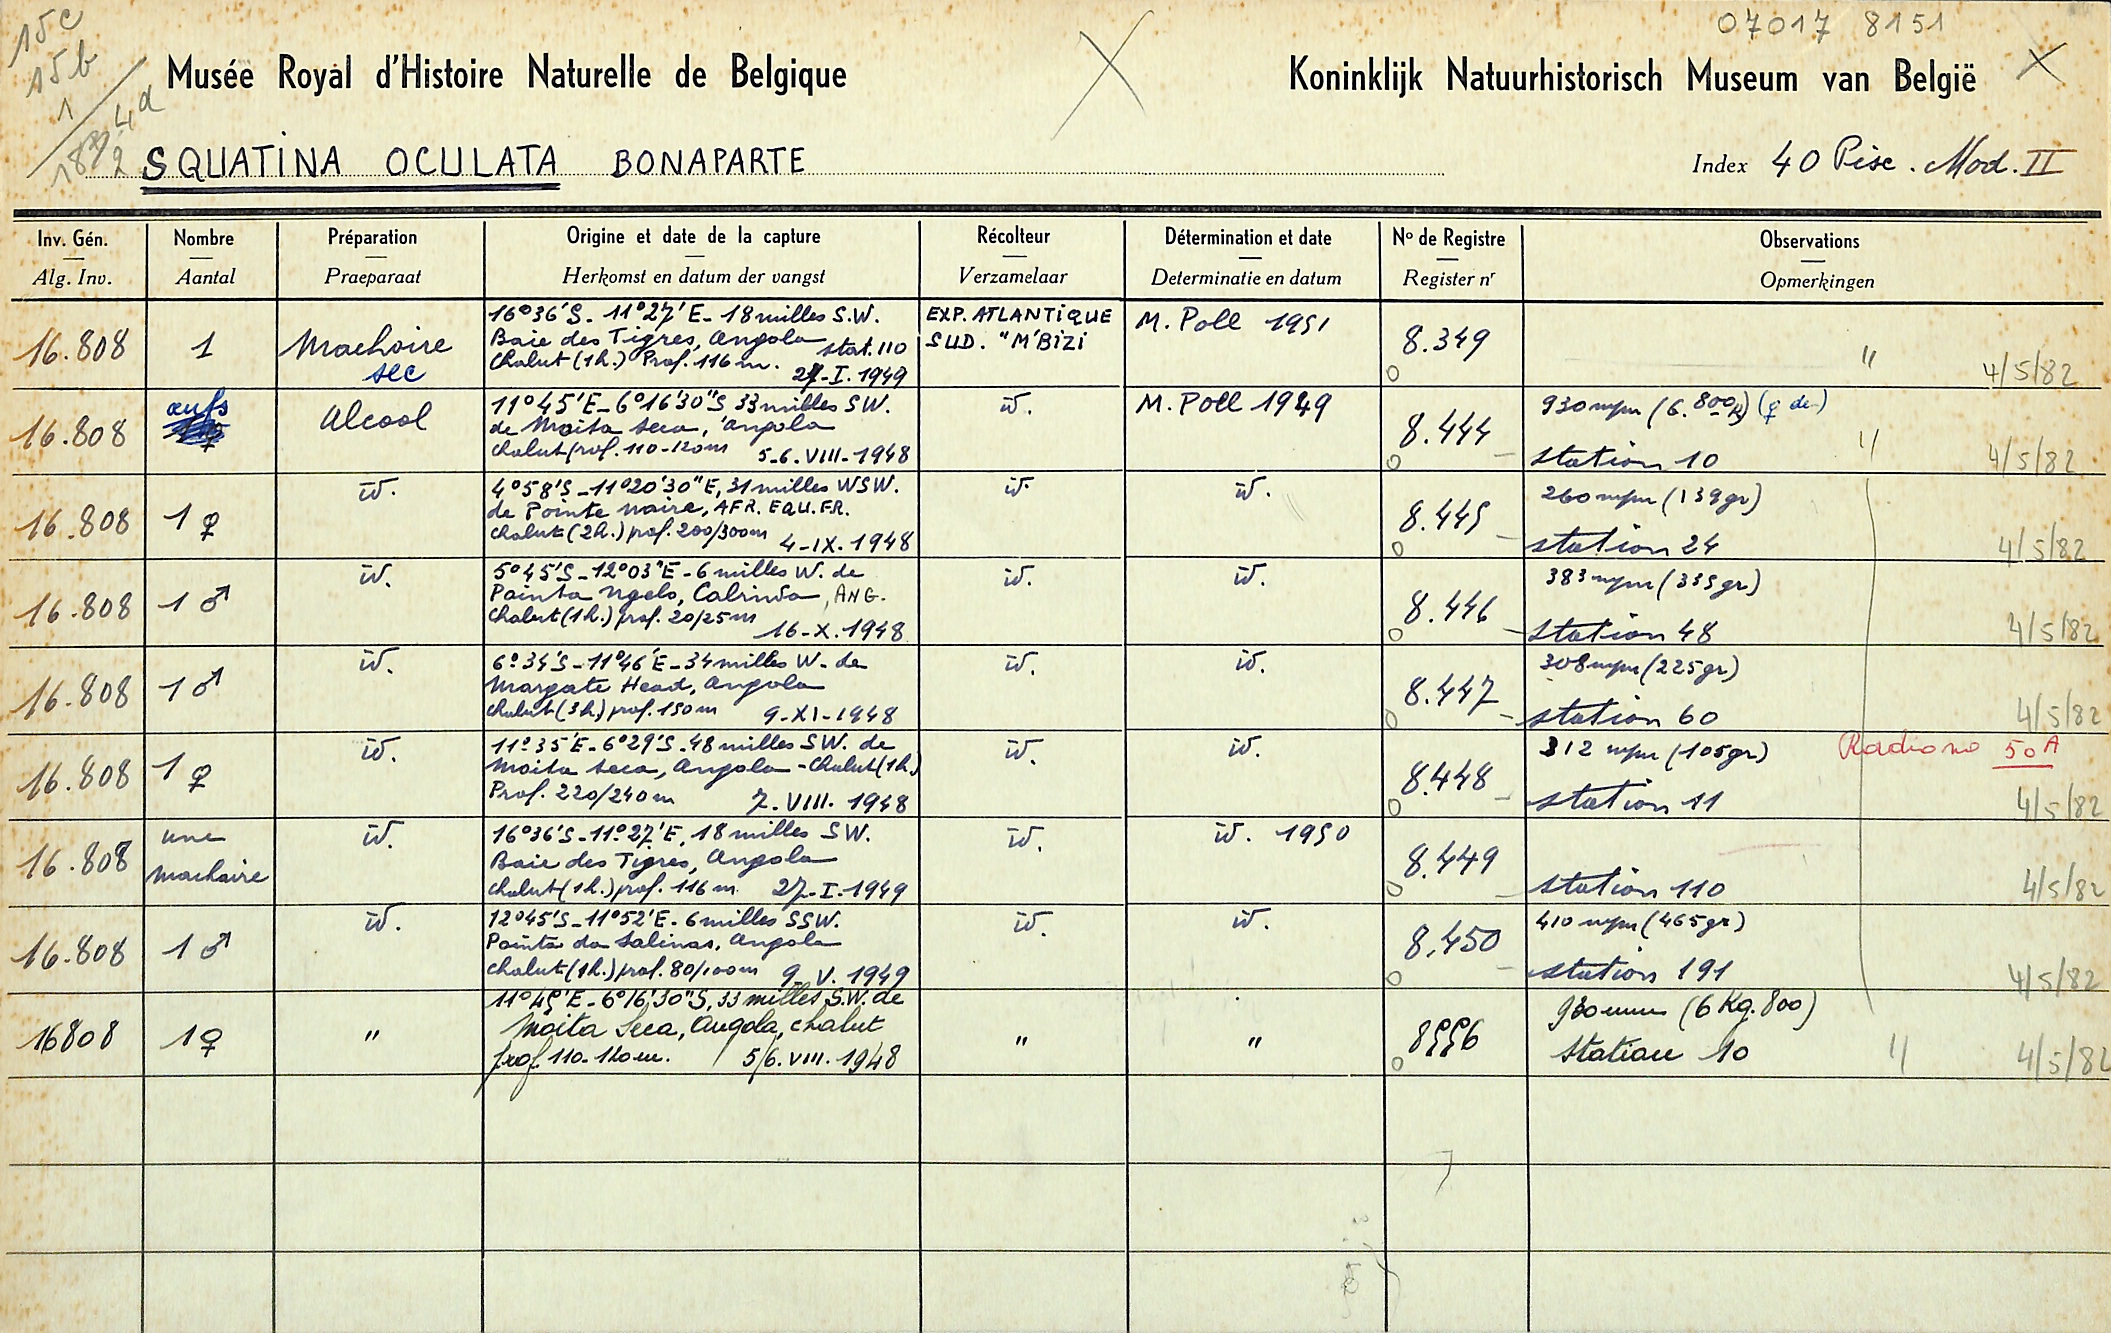 15c
15b
1
4a
18
2
07017 8151
Musée Royal d'Histoire Naturelle de Belgique
Koninklijk Natuurhistorisch Museum van België
SQUATINA OCULATA BONAPARTE
Index 40 Pisc. Mod. II
Inv. Gén. Nombre Préparation Origine et date de la capture Récolteur Détermination et date No de Registre Observations
Alg. Inv. Aantal Praeparaat Herkomst en datum der vangst Verzamelaar Determinatie en datum Register nr Opmerkingen
16.808 1 Machoire sec
16°36'S - 11°27'E - 18 milles S.W.
Baie des Tigres, Angola stat. 110
Chalut (1h.) Prof. 116 m. 27-I.1949
EXP. ATLANTIQUE
SUD. "M'BIZI
M. Poll 1951
8.349
" 4/5/82
16.808 œufs Alcool
11°45'E - 6°16'30"S 33 milles SW.
de Moita seca, Angola
chalut prof. 110-120m 5-6.VIII-1948
id. M. Poll 1949
8.444
930 mm (6.800 k) (♀ de)
station 10
" 4/5/82
16.808 1 ♀ id.
4°58'S - 11°20'30"E, 31 milles WSW.
de Pointe noire, AFR. EQU. FR.
chalut (2h.) prof. 200/300m 4-IX.1948
id. id.
8.445
260 mm (139gr)
station 24
4/5/82
16.808 1 ♂ id.
5°45'S - 12°03'E - 6 milles W. de
Pointa ngelo, Cabinda, ANG.
Chalut (1h.) prof. 20/25m 16-X.1948
id. id.
8.446
383 mm (335gr)
station 48
4/5/82
16.808 1 ♂ id.
6°34'S - 11°46'E - 34 milles W. de
Margate Head, Angola
chalut (3h.) prof. 150m 9-XI-1948
id. id.
8.447
308 mm (225gr)
station 60
4/5/82
16.808 1 ♀ id.
11°35'E - 6°29'S - 48 milles SW. de
Moita seca, Angola - Chalut (1h.)
Prof. 220/240m 7.VIII.1948
id. id.
8.448
312 mm (105gr) Radio no 50A
station 11
4/5/82
16.808 une machoire id.
16°36'S - 11°27'E, 18 milles SW.
Baie des Tigres, Angola
chalut (1h.) prof. 116 m. 27-I-1949
id. id. 1950
8.449
station 110
4/5/82
16.808 1 ♂ id.
12°45'S - 11°52'E - 6 milles SSW.
Pointa da Salinas, Angola
chalut (1h.) prof. 80/100m 9.V.1949
id. id.
8.450
410 mm (465gr)
station 191
4/5/82
16808 1♀ "
11°45'E - 6°16'30"S, 33 milles S.W. de
Moita Seca, Angola, chalut
prof. 110-120m. 5/6.VIII.1948
" "
8556
930 mm (6 Kg. 800)
Station 10
" 4/5/82